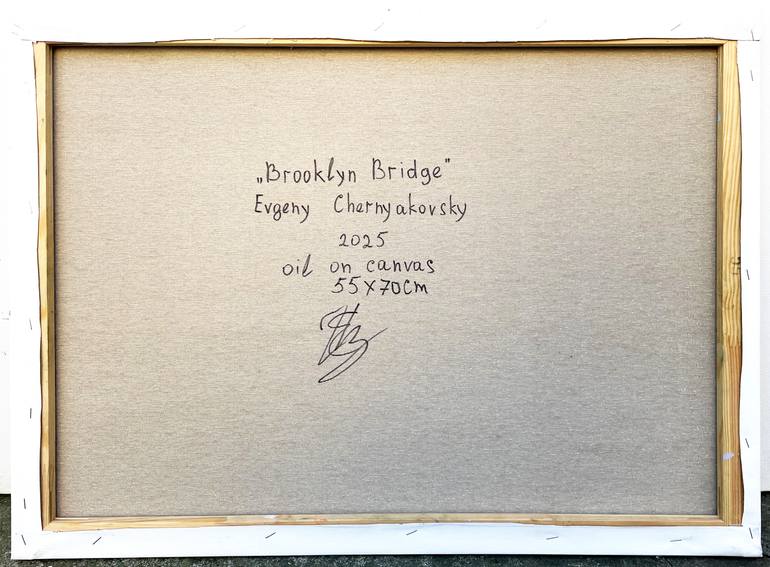 „Brooklyn Bridge"
Evgeny Chernyakovsky
2025
oil on canvas
55x70cm